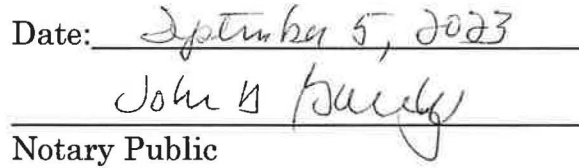 Date: September 5, 2023
John
Notary Public